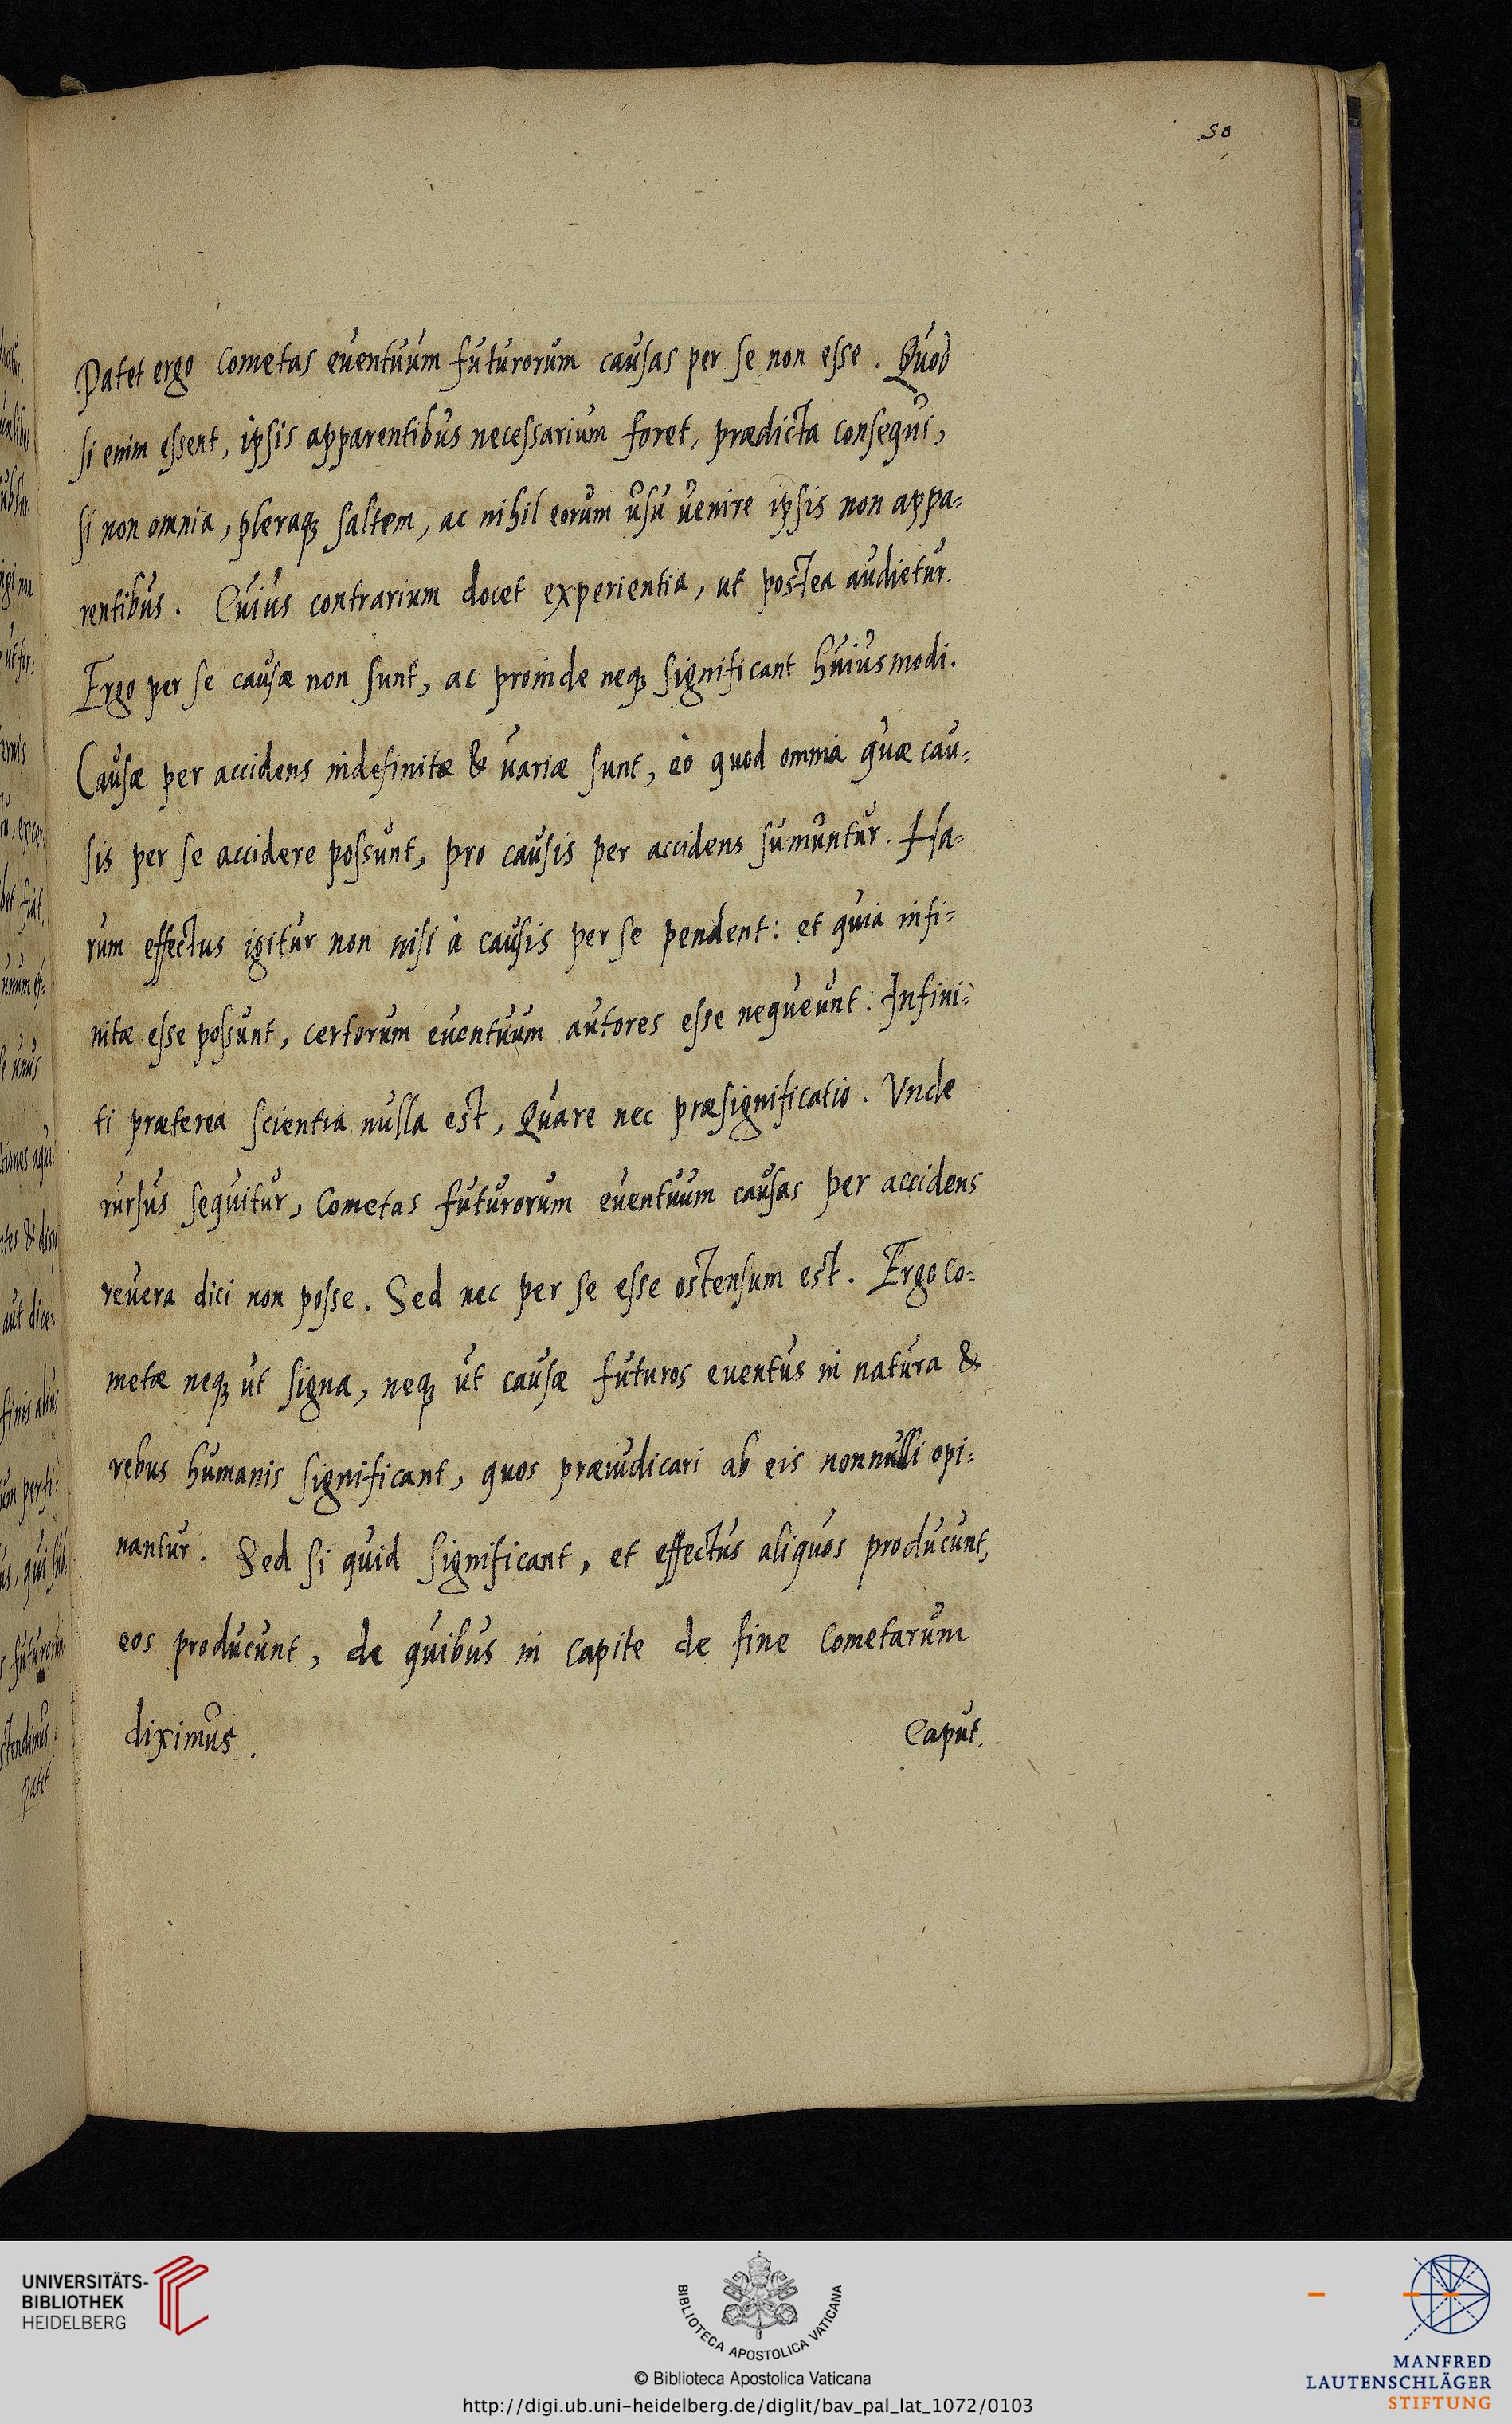 50
Patet ergo cometas eventuum futurorum causas per se non esse. Quod
si enim essent, ipsis apparentibus necessarium foret, prædicta consequi,
si non omnia, pleraq; saltem, ac nihil eorum usu venire ipsis non appa=
rentibus. Cuius contrarium docet experientia, ut postea audietur.
Ergo per se causæ non sunt, ac proinde neq; significant huiusmodi.
Causæ per accidens indefinitæ & variæ sunt, eò quod omnia quæ cau=
sis per se accidere possunt, pro causis per accidens sumuntur. Ha=
rum effectus igitur non nisi à causis per se pendent: et quia infi=
nitæ esse possunt, certorum eventuum autores esse nequeunt. Infini=
ti præterea scientia nulla est, Quare nec præsignificatio. Vnde
rursus sequitur, Cometas futurorum eventuum causas per accidens
revera dici non posse. Sed nec per se esse ostensum est. Ergo Co=
metæ neq; ut signa, neq; ut causæ futuros eventus in natura &
rebus humanis significant, quos præiudicari ab eis nonnulli opi=
nantur. Sed si quid significant, et effectus aliquos producunt,
eos producunt, de quibus in capite de fine Cometarum
diximus.
Caput.
UNIVERSITÄTS-
BIBLIOTHEK
HEIDELBERG
BIBLIOTECA APOSTOLICA VATICANA
© Biblioteca Apostolica Vaticana
http://digi.ub.uni-heidelberg.de/diglit/bav_pal_lat_1072/0103
MANFRED
LAUTENSCHLÄGER
STIFTUNG